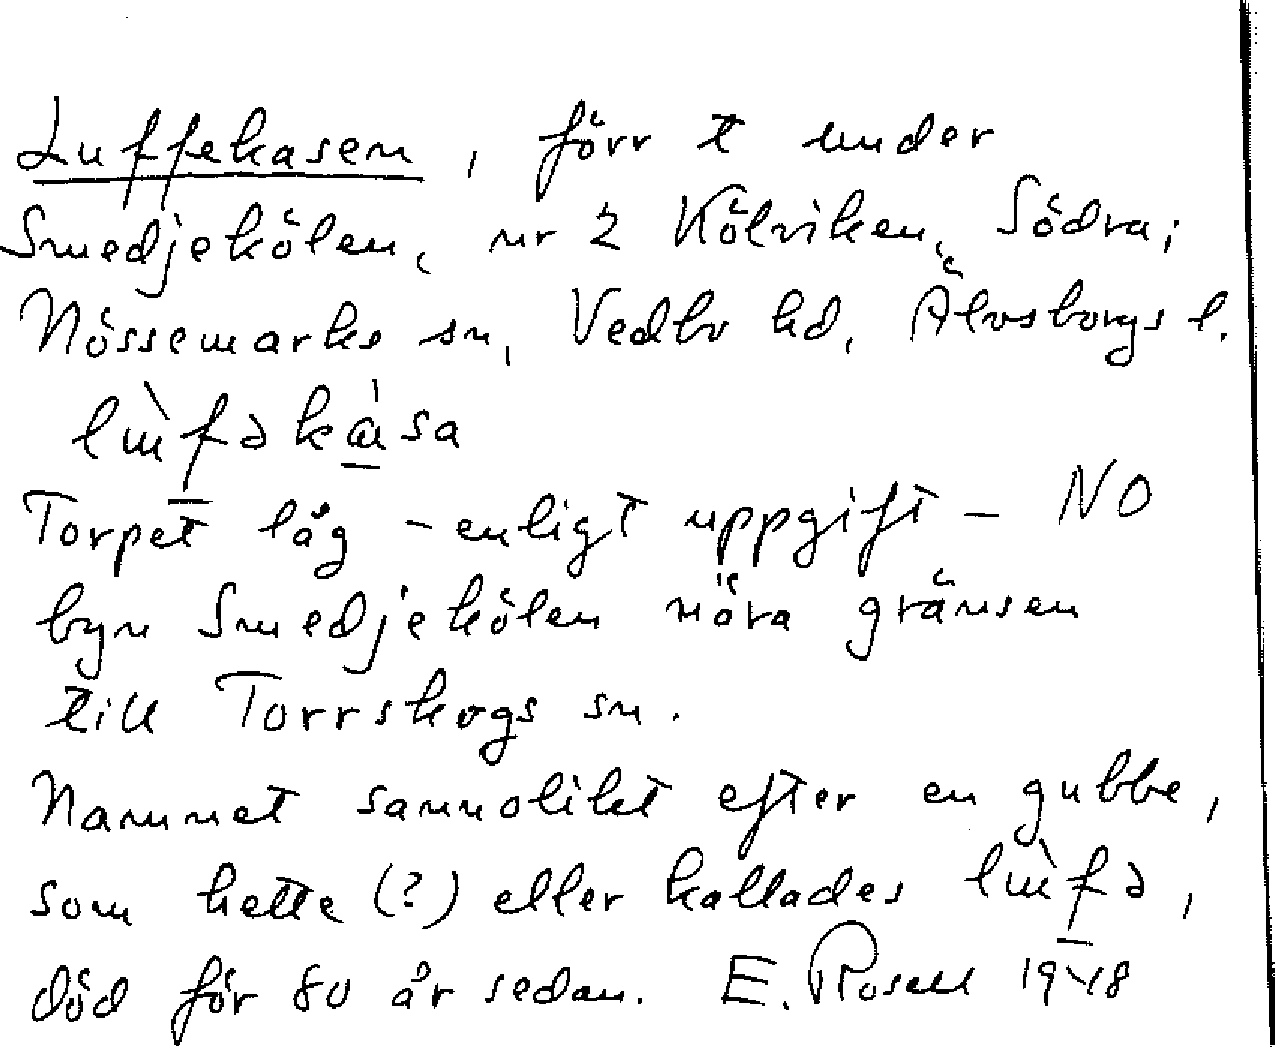 Luffekasen, förr t under
Smedjekölen, nr 2 Kölviken, Södra;
Nössemarks sn, Vedbo hd, Älvsborgs l.
lùfəkása
Torpet låg – enligt uppgift – NO
byn Smedjekölen nära gränsen
till Torrskogs sn.
Namnet sannolikt efter en gubbe,
som hette (?) eller kallades lùfə,
död för 80 år sedan. E. Rosell 1948